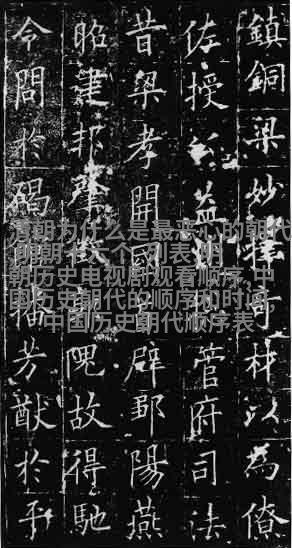 鎮銅梁妙擇奇材以為僚
佐授益州管府司法
昔梁孝開國首辟鄒陽燕
昭建邦肇徵郭隗故得馳
令問於碣播芳猷於平
清朝为什么是最恶心的朝代
,明朝十六个列表,明
朝历史电视剧观看顺序,中
国历史朝代的顺序和时间
,中国历史朝代顺序表